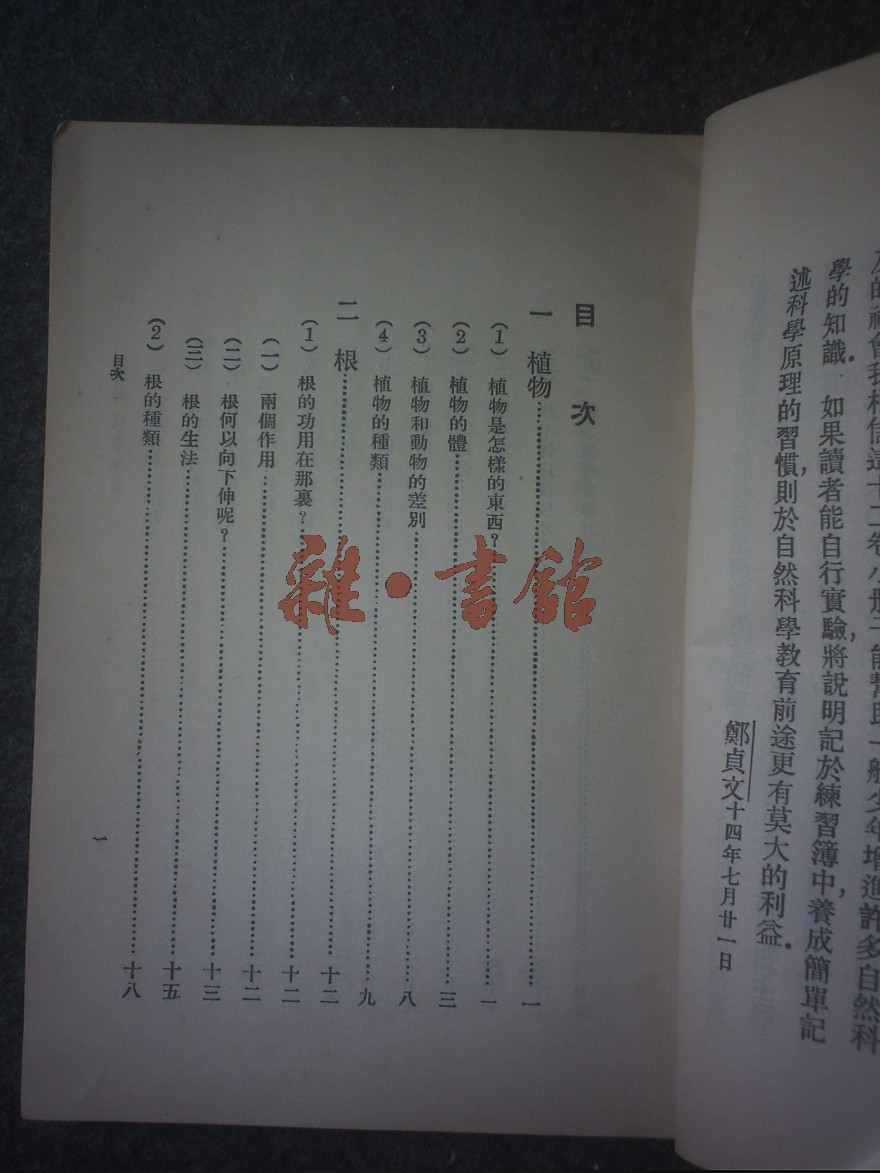 學的知識.如果讀者能自行實驗,將說明記於練習簿中,養成簡單記
述科學原理的習慣,則於自然科學教育前途更有莫大的利益.
鄭貞文十四年七月廿一日
目次
一 植物……一
(1) 植物是怎樣的東西?……一
(2) 植物的體……三
(3) 植物和動物的差別……八
(4) 植物的種類……九
二 根……十二
(1) 根的功用在那裏?……十二
(一) 兩個作用……十二
(二) 根何以向下伸呢?……十三
(三) 根的生法……十五
(2) 根的種類……十八
目次
一
雜·書館